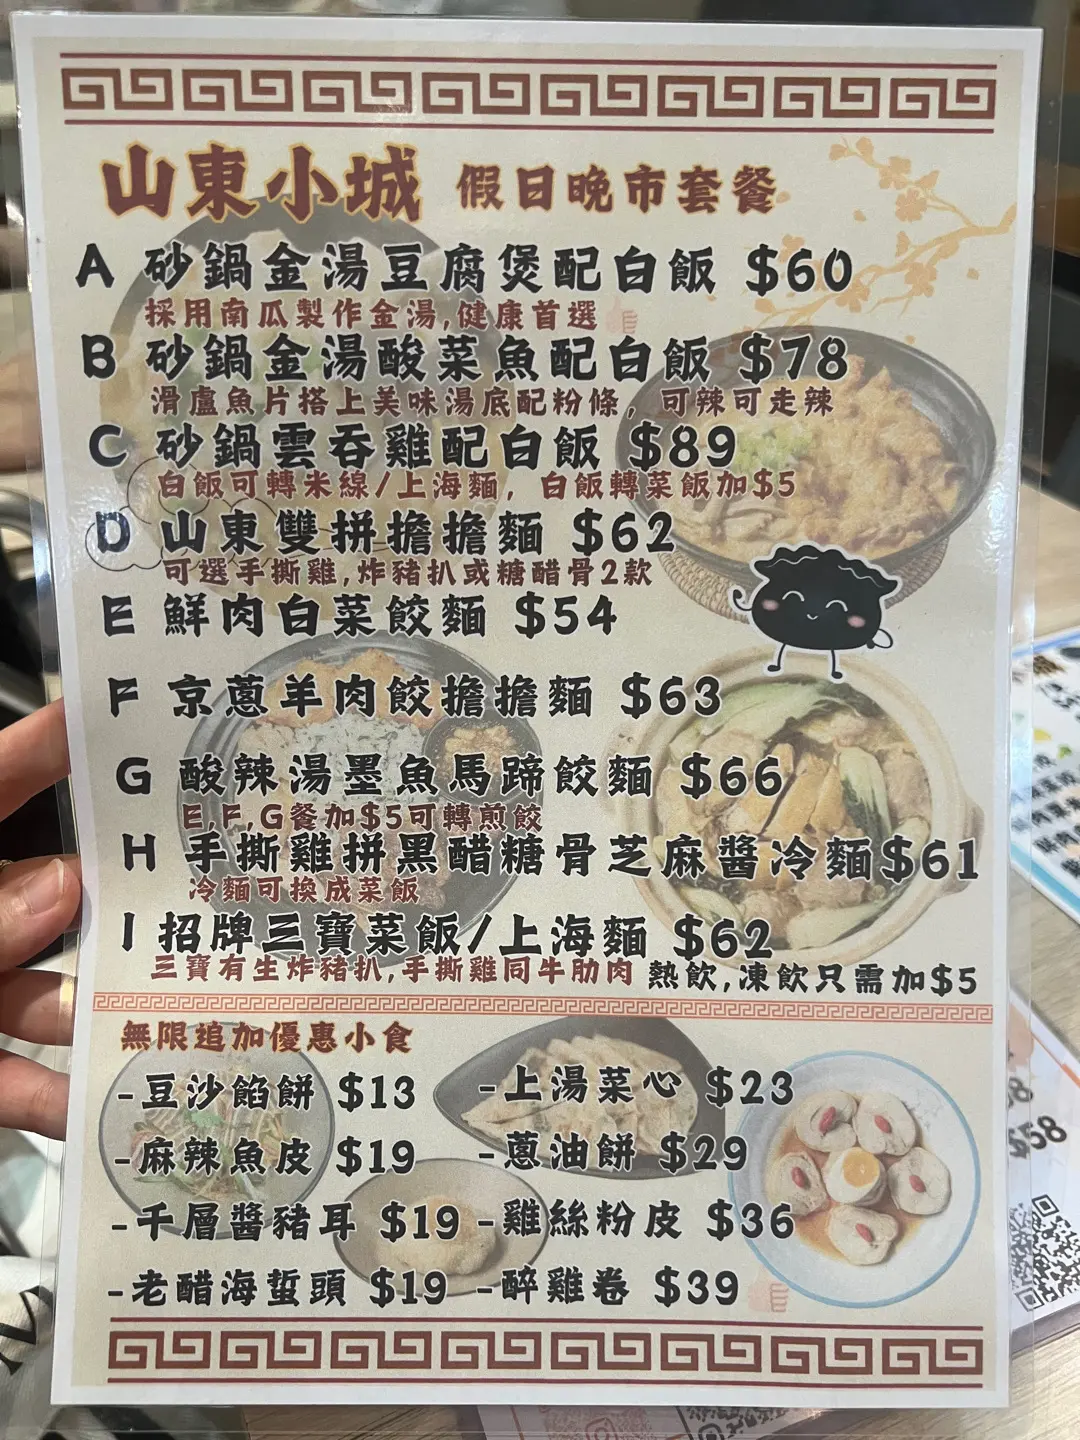 山東小城 假日晚市套餐
A 砂鍋金湯豆腐煲配白飯 $60
採用南瓜製作金湯,健康首選
B 砂鍋金湯酸菜魚配白飯 $78
滑盧魚片搭上美味湯底配粉條，可辣可走辣
C 砂鍋雲吞雞配白飯 $89
白飯可轉米線/上海麵，白飯轉菜飯加$5
D 山東雙拼擔擔麵 $62
可選手撕雞,炸豬扒或糖醋骨2款
E 鮮肉白菜餃麵 $54
F 京蔥羊肉餃擔擔麵 $63
G 酸辣湯墨魚馬蹄餃麵 $66
E,F,G餐加$5可轉煎餃
H 手撕雞拼黑醋糖骨芝麻醬冷麵$61
冷麵可換成菜飯
I 招牌三寶菜飯/上海麵 $62
三寶有生炸豬扒,手撕雞同牛肋肉 熱飲,凍飲只需加$5
無限追加優惠小食
-豆沙餡餅 $13
-麻辣魚皮 $19
-千層醬豬耳 $19
-老醋海蜇頭 $19
-上湯菜心 $23
-蔥油餅 $29
-雞絲粉皮 $36
-醉雞卷 $39
$58